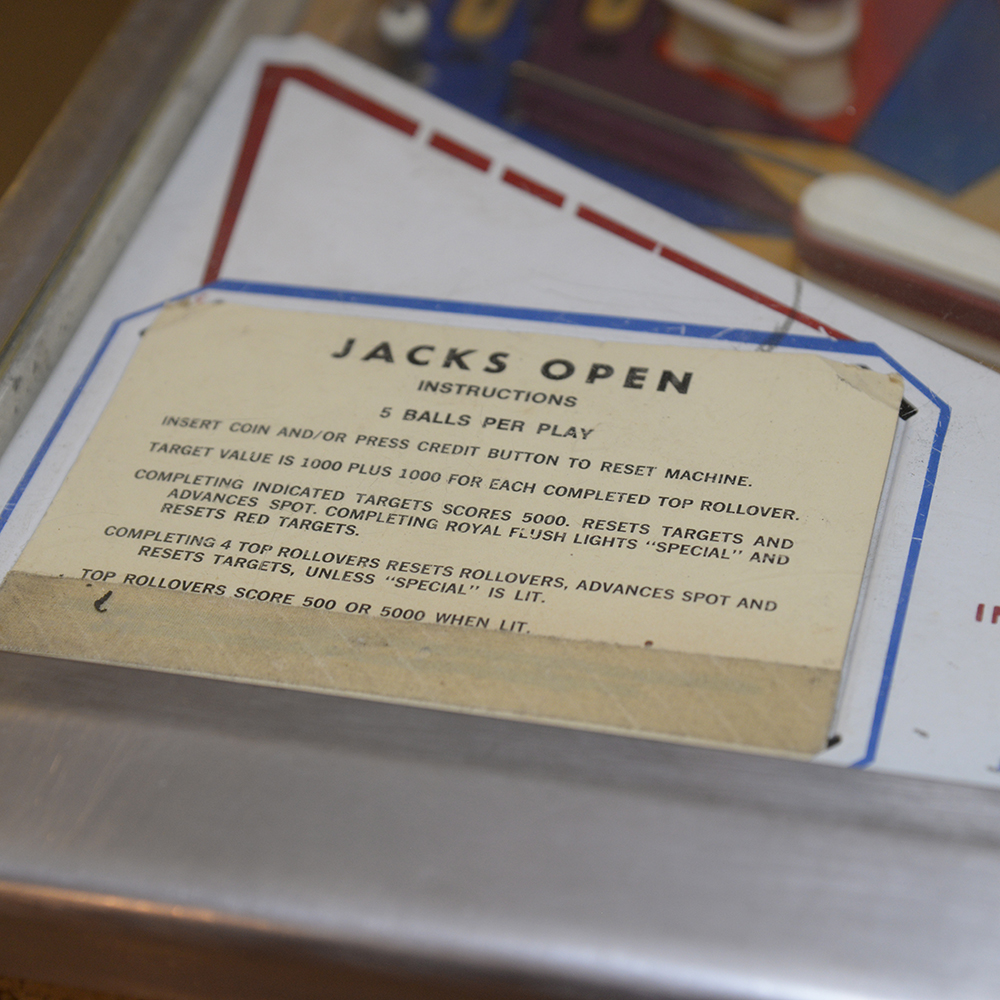 JACKS OPEN
INSTRUCTIONS
5 BALLS PER PLAY
INSERT COIN AND/OR PRESS CREDIT BUTTON TO RESET MACHINE.
TARGET VALUE IS 1000 PLUS 1000 FOR EACH COMPLETED TOP ROLLOVER.
COMPLETING INDICATED TARGETS SCORES 5000. RESETS TARGETS AND
ADVANCES SPOT. COMPLETING ROYAL FLUSH LIGHTS "SPECIAL" AND
RESETS RED TARGETS.
COMPLETING 4 TOP ROLLOVERS RESETS ROLLOVERS, ADVANCES SPOT AND
RESETS TARGETS, UNLESS "SPECIAL" IS LIT.
TOP ROLLOVERS SCORE 500 OR 5000 WHEN LIT.